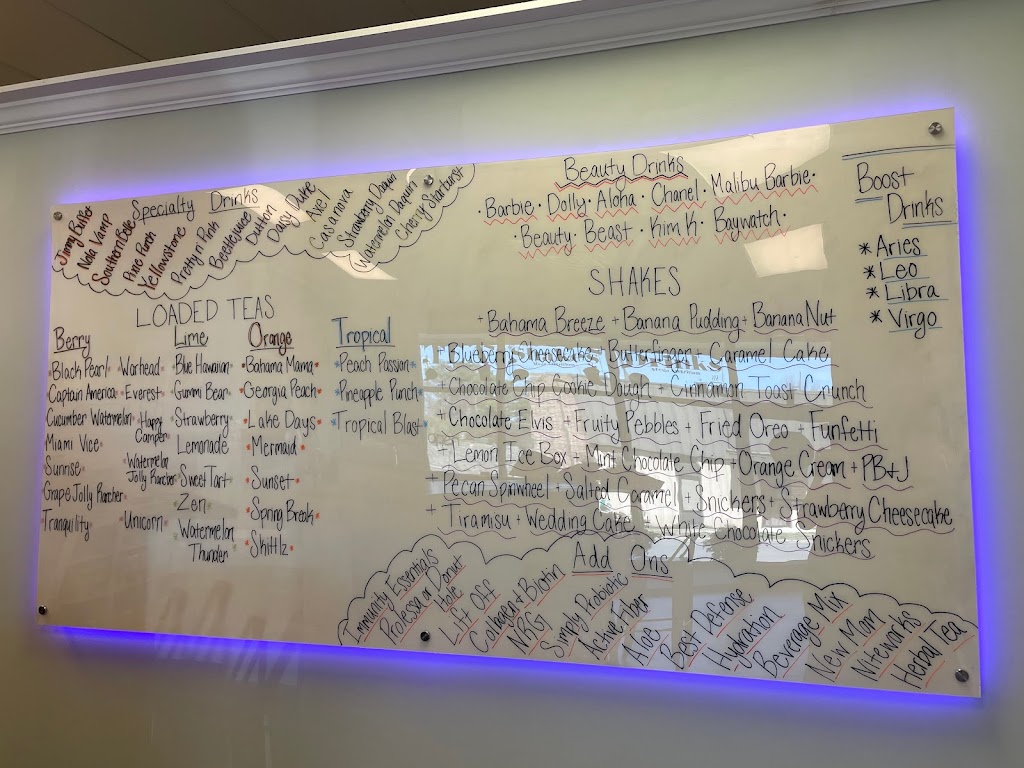 Specialty Drinks
Jimmy Buffet
Nola Vamp
Southern Belle
Pixie Punch
Yellowstone
Pretty n' Pink
Beetlejuice
Dutton
Daisy Duke
Axel
Casanova
Strawberry Daquiri
Watermelon Daquiri
Cherry Starburst
Beauty Drinks
· Barbie · Dolly · Aloha · Chanel · Malibu Barbie ·
· Beauty · Beast · Kim K · Baywatch ·
Boost
Drinks
* Aries
* Leo
* Libra
* Virgo
LOADED TEAS
Berry
Black Pearl
Captain America
Cucumber Watermelon
Miami Vice
Sunrise
Grape Jolly Rancher
Tranquility
Warhead
Everest
Happy
Camper
Watermelon
Jolly Rancher
Unicorn
Lime
Blue Hawaiian
Gummi Bear
Strawberry
Lemonade
Sweet Tart
Zen
Watermelon
Thunder
Orange
Bahama Mama
Georgia Peach
Lake Days
Mermaid
Sunset
Spring Break
Skittlz
Tropical
Peach Passion
Pineapple Punch
Tropical Blast
SHAKES
+ Bahama Breeze + Banana Pudding + Banana Nut
+ Blueberry Cheesecake + Butterfinger + Caramel Cake
+ Chocolate Chip Cookie Dough + Cinnamon Toast Crunch
+ Chocolate Elvis + Fruity Pebbles + Fried Oreo + Funfetti
+ Lemon Ice Box + Mint Chocolate Chip + Orange Cream + PB+J
+ Pecan Spinwheel + Salted Caramel + Snickers + Strawberry Cheesecake
+ Tiramisu + Wedding Cake + White Chocolate Snickers
Add Ons
Immunity Essentials
Protessa or Donut
Hole
Lift Off
Collagen + Biotin
NRG
Simply Probiotic
Active Fiber
Aloe
Best Defense
Hydration
Beverage Mix
New Mom
Niteworks
Herbal Tea